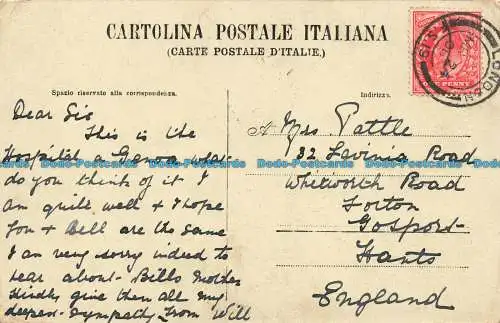 CARTOLINA POSTALE ITALIANA
(CARTE POSTALE D'ITALIE.)
Spazio riservato alla corrispondenza.
Indirizzo.
Dear Sis
This is the
Hospital Genoa what
do you think of it I
am quite well & I hope
you & Bell are the same
I am very sorry indeed to
hear about Bills Mother
Kindly give them all my
deepest Sympathy from Will
Mrs Pattle
32 Lavinia Road
Whitworth Road
Forton
Gosport
Hants
England
LONDON
ONE PENNY
Dodo-Postcards Dodo-Postcards Dodo-Postcards Dodo-Postcards Dodo-Postcards